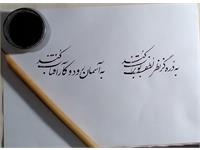 به ذره گر نظر لطف بوتراب کند
به آسمان رود و کار آفتاب کند